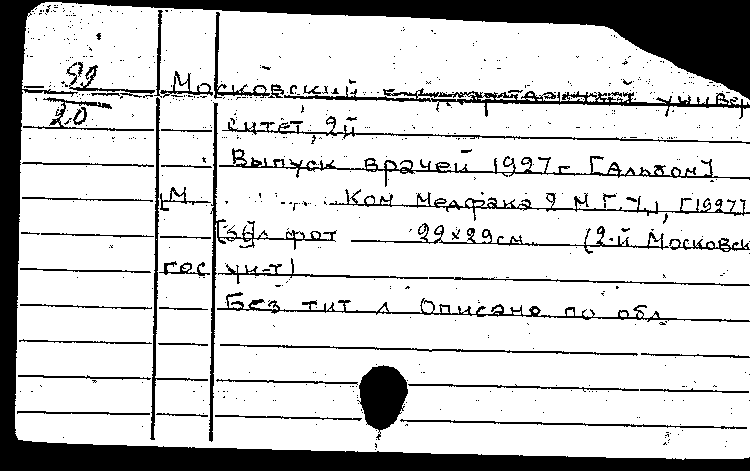 99
20
Московский государственный универ
ситет, 2й
Выпуск врачей 1927 г [Альбом]
[М. Ком Медфака 2 М.Г.У., [1927]
л фот 22×29см (2-й Московск
гос ун-т)
Без тит л Описано по обл